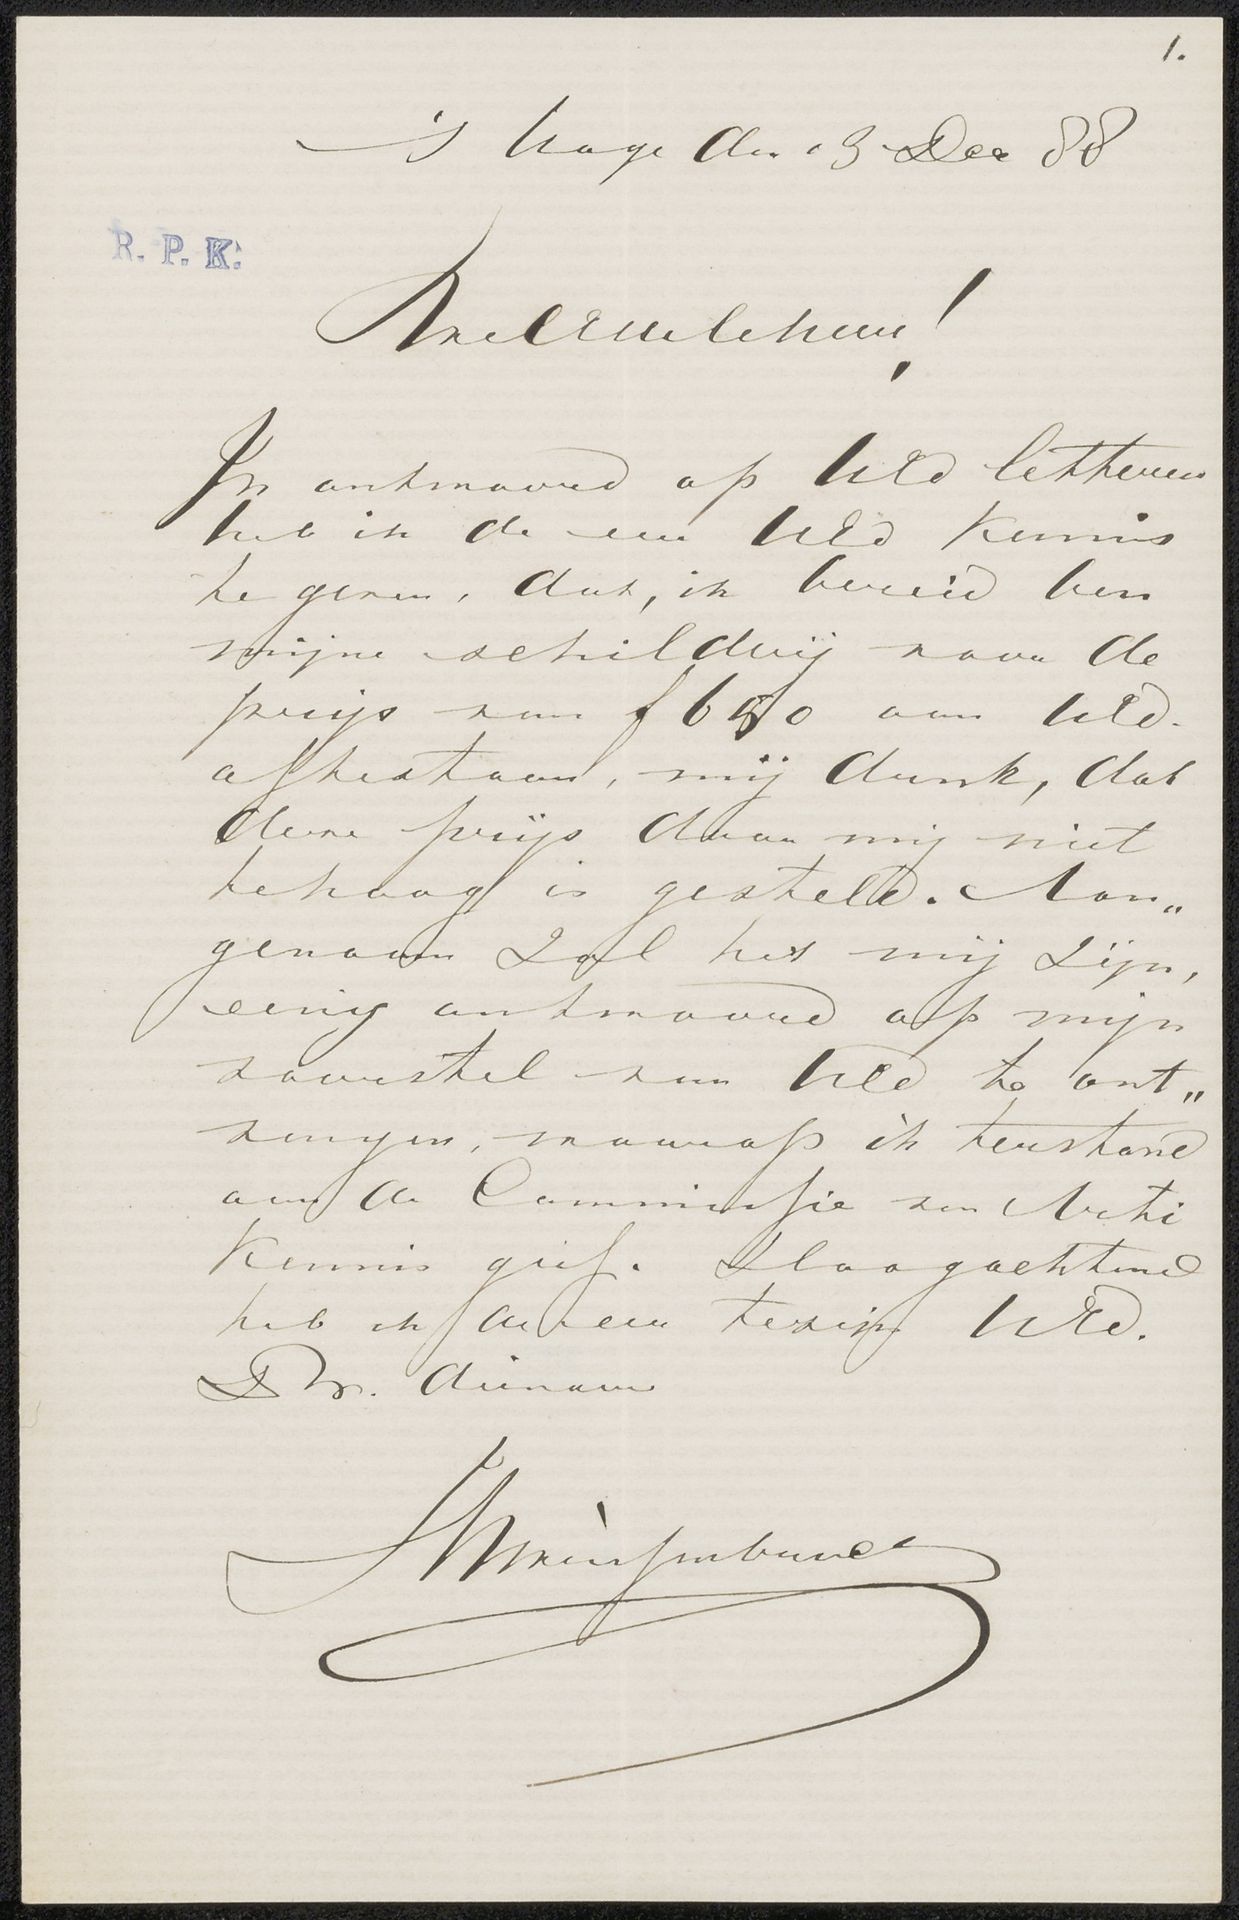 1.
's Hage den 3 Dec 88
R. P. K.
WelEdeleheer!
In antwoord op UEd letteren
heb ik de eer UEd kennis
te geven, dat, ik bereid ben
mijne schilderij voor de
prijs van f 650 aan UEd.
aftestaan, mij dunk, dat
deze prijs door mij niet
tehoog is gesteld. Aan„
genaam zal het mij zijn,
eenig antwoord op mijn
voorstel van UEd te ont„
vangen, waarop ik terstond
aan de Commissie van Arti
kennis geef. Hoogachtend
heb ik de eer tezijn UEd.
DWr. dienaar